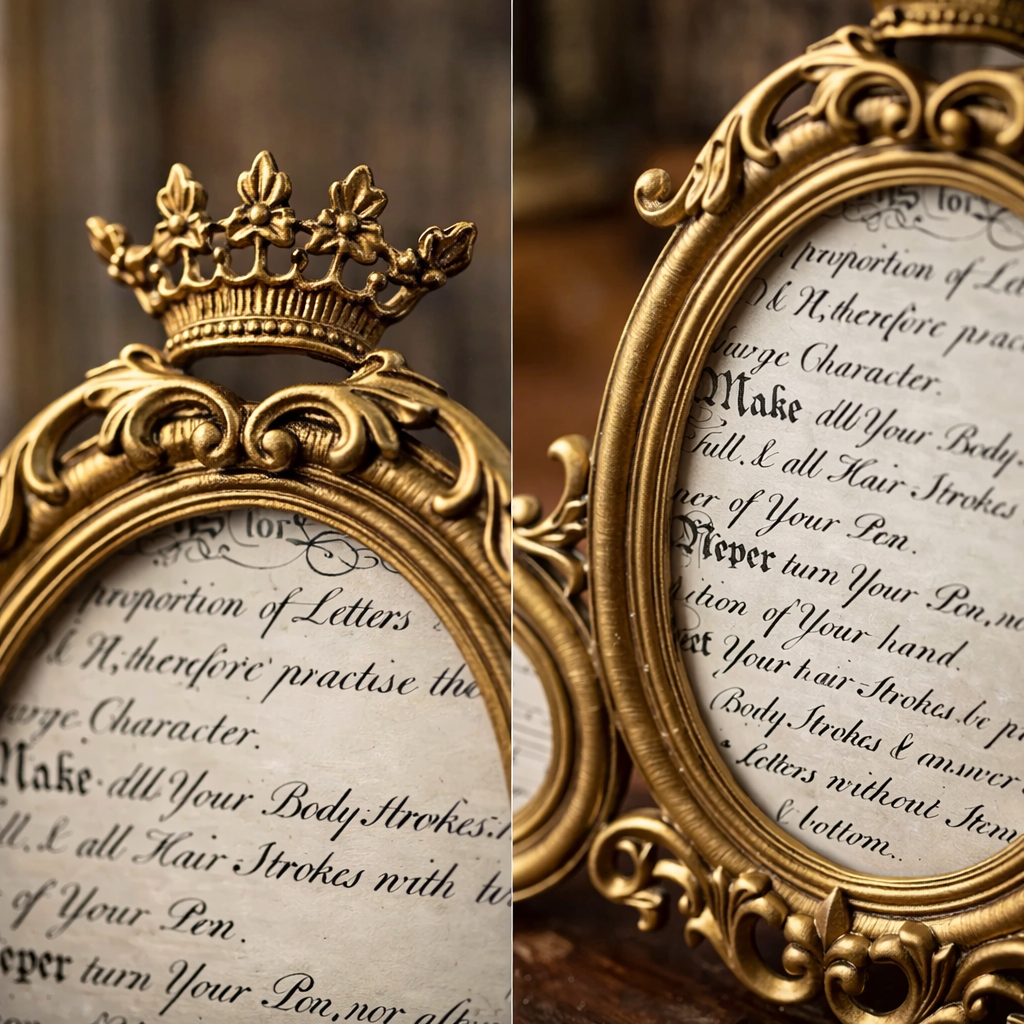 for
proportion of Letters
& N, therefore practise the
Character.
Make all Your Body Strokes.
& all Hair Strokes with
of Your Pen.
turn Your Pen, nor
for
proportion of
D & N, therefore
Character.
Make all Your Body
Full. & all Hair Strokes
of Your Pen.
Neper turn Your Pen,
of Your hand.
Your hair Strokes be
Body Strokes & answer
Letters without
& bottom.